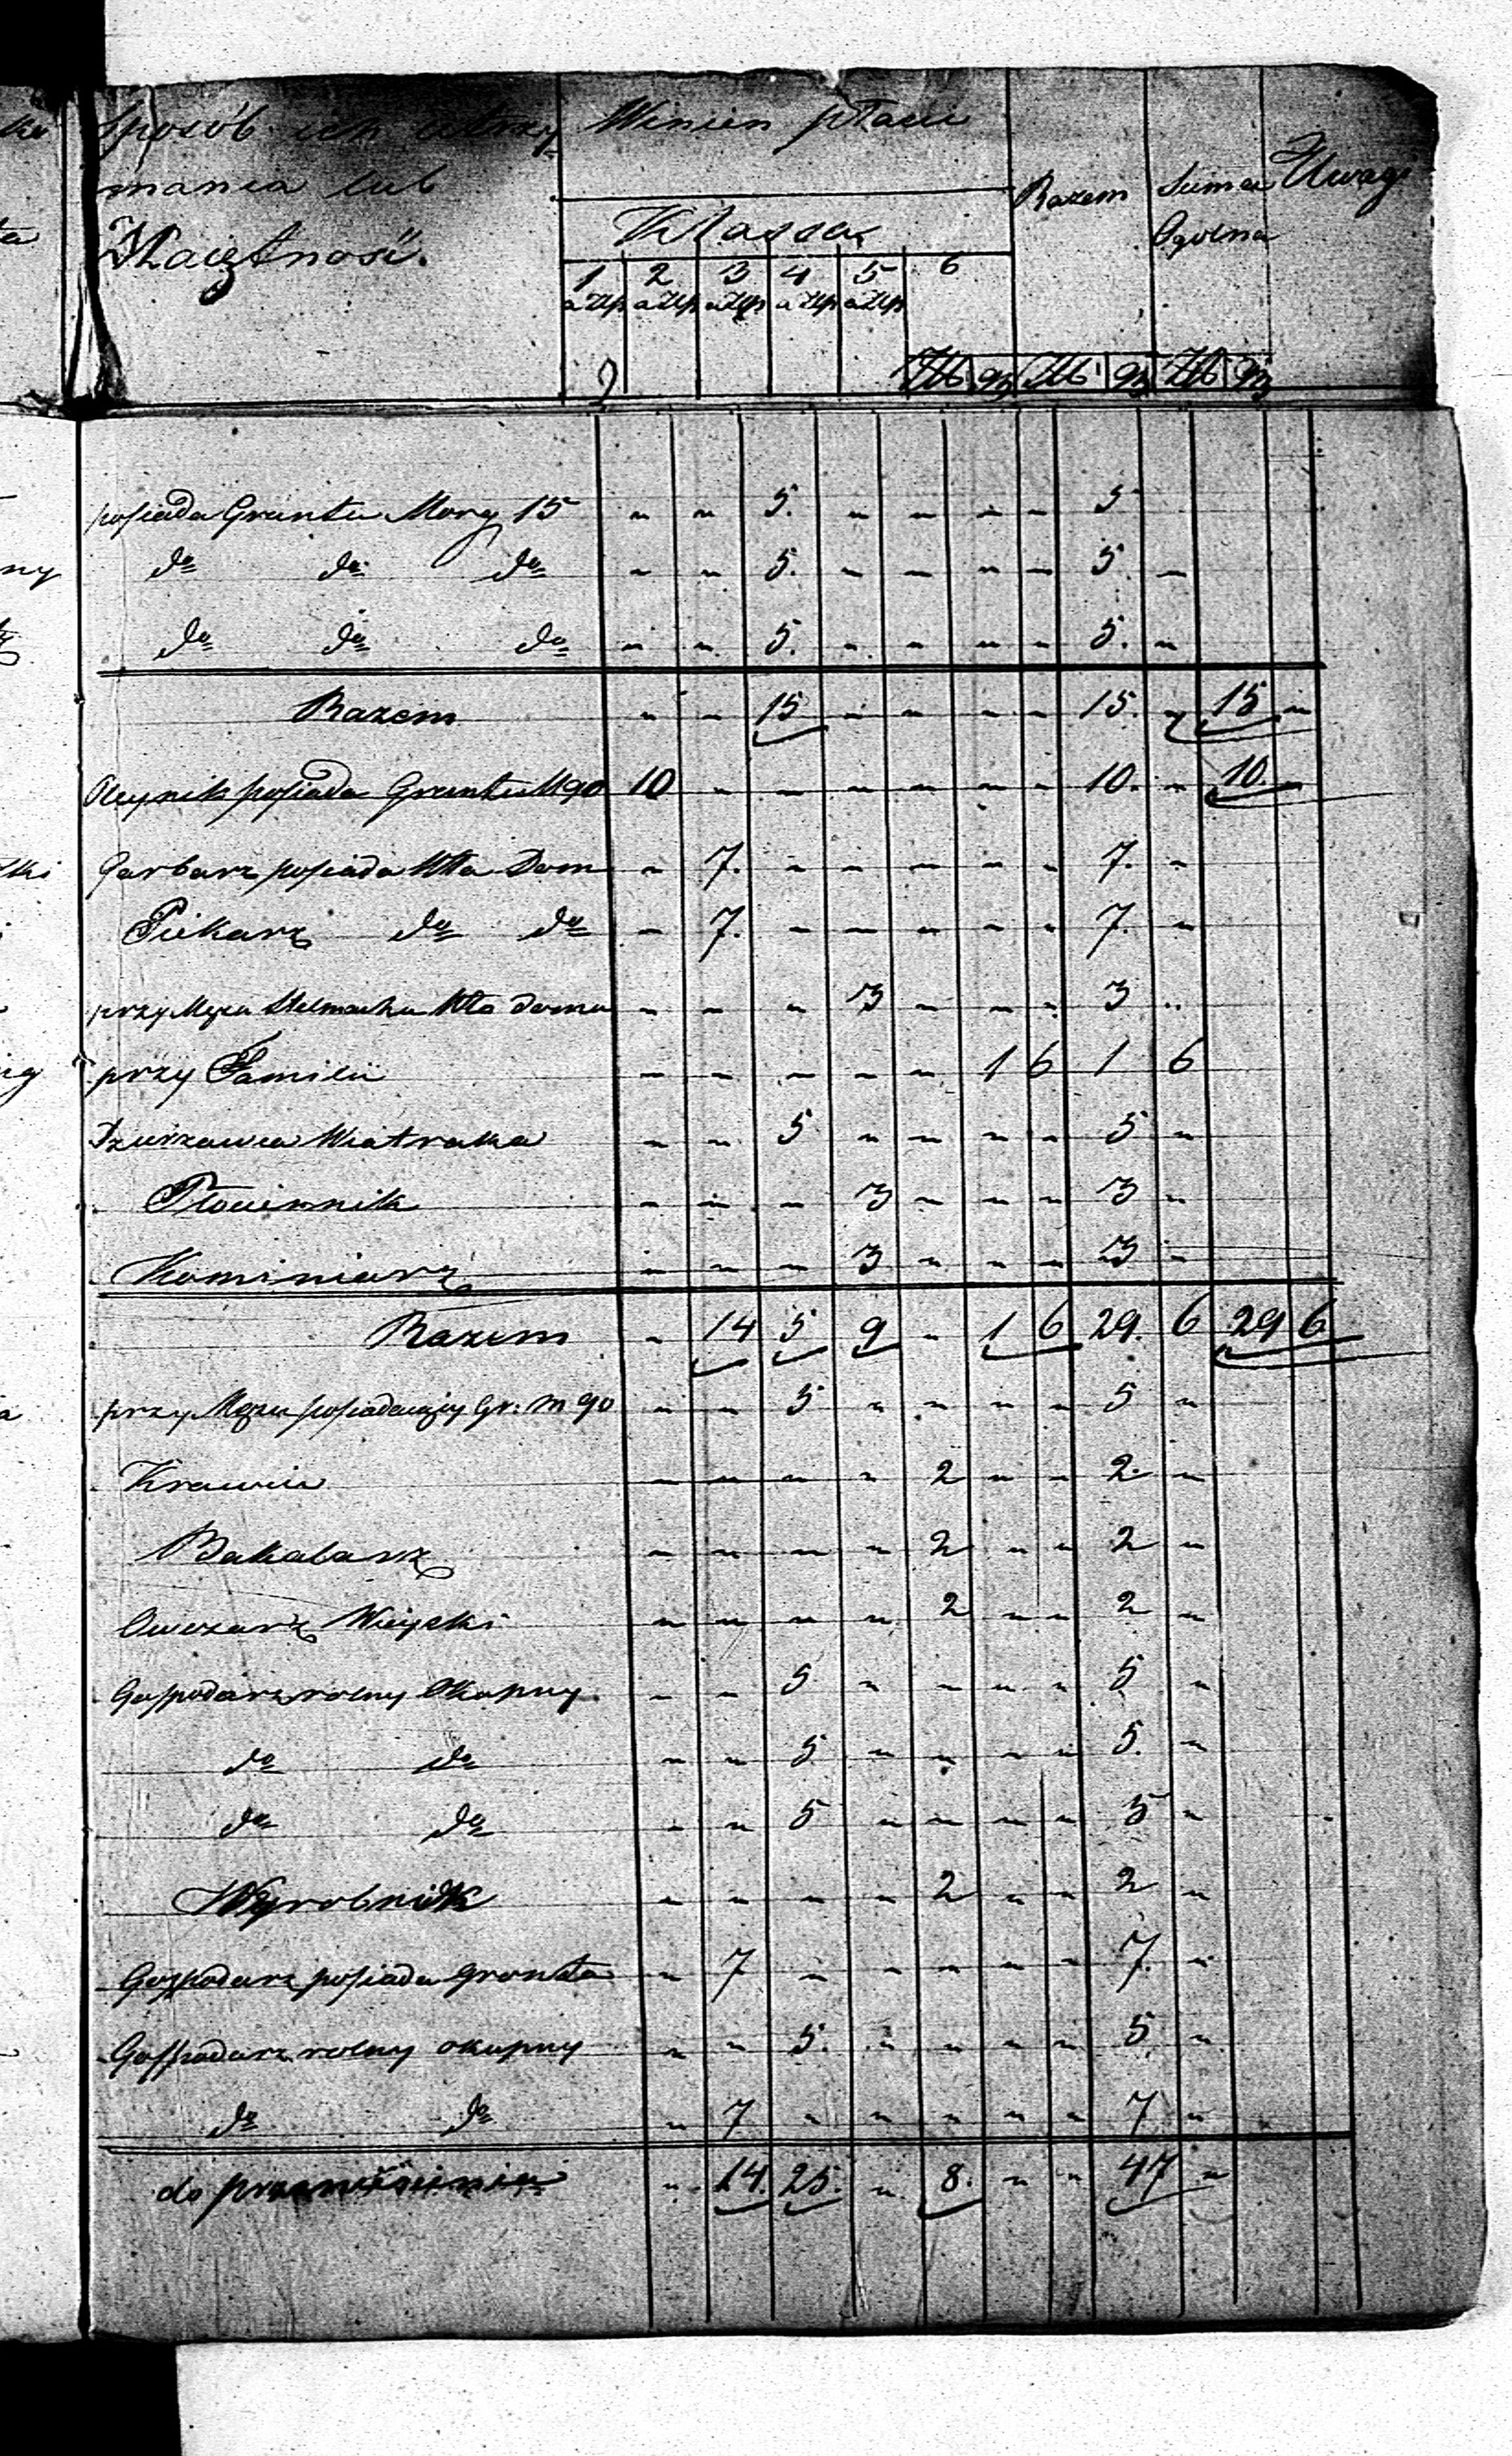 Sposób ich utrzy
mania lub
Maiętnosci.
Winien płacić
Klassa
1 2 3 4 5 6
a Złp a Złp a Złp a Złp a Złp
Razem
Suma
Ogolna
Uwagi
Zł gr Zł gr Zł gr
posiada Gruntu Morg 15 - - 5. - - - - 5
do do do - - 5. - - - - 5. -
do do do - - 5. - - - - 5. -
Razem - - 15 - - - - 15. - 15 -
Oleynik posiada Gruntu M 90 10 - - - - - - 10. - 10. -
Garbarz posiada Dom - 7. - - - - - 7. -
Piekarz do do - 7. - - - - - 7. -
przy Mężu Stelmachu domu - - - 3 - - - 3 -
przy Familii - - - - - 1 6 1 6
Dzierzawca Wiatraka - - 5 - - - - 5 -
Płóciennik - - - 3 - - - 3 -
Kominiarz - - - 3 - - - 3 -
Razem - 14 5 9 - 1 6 29. 6 29 6
przy Mężu posiadaiący Gr: M 90 - - 5 - - - - 5 -
Krawiec - - - - 2 - - 2 -
Bakalarz - - - - 2 - - 2 -
Owczarz Wieyski - - - - 2 - - 2 -
Gospodarz rolny Okupny - - 5 - - - - 5 -
do do - - 5 - - - - 5. -
do do - - 5 - - - - 5 -
Wyrobnik - - - - 2 - - 2 -
Gospodarz posiada gronta - 7 - - - - - 7. -
Gospodarz rolny okupny - - 5. - - - - 5. -
do do - 7 - - - - - 7 -
do przeniesienia - 14. 25. - 8. - - 47 -